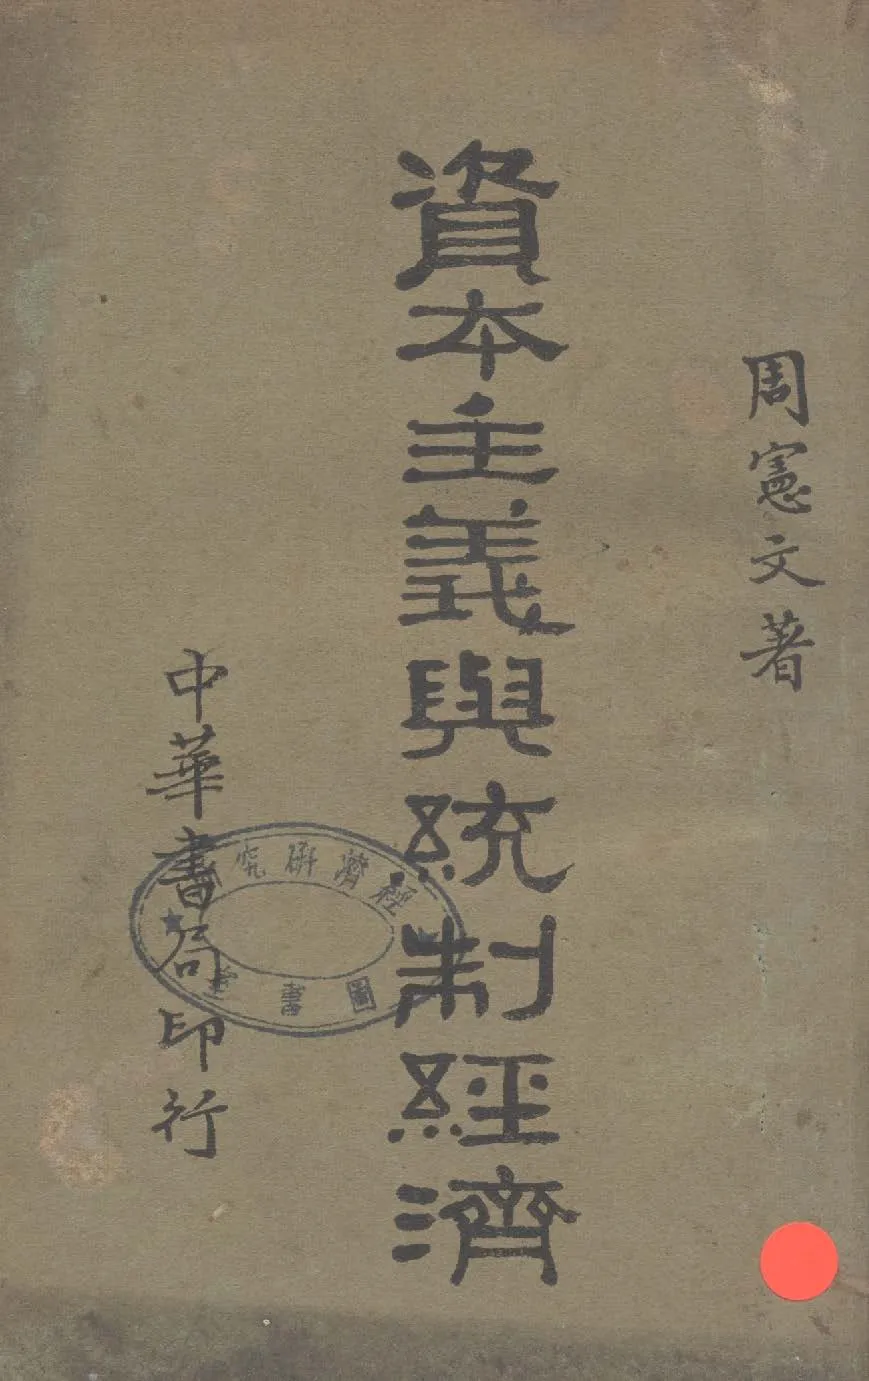 周憲文著
資本主義與統制經濟
中華書局印行
經濟研究
圖書